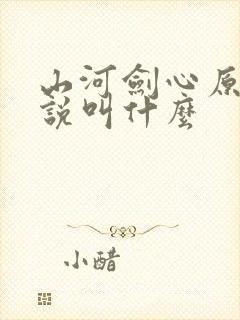 山河劍心原
說叫什麼
小醋